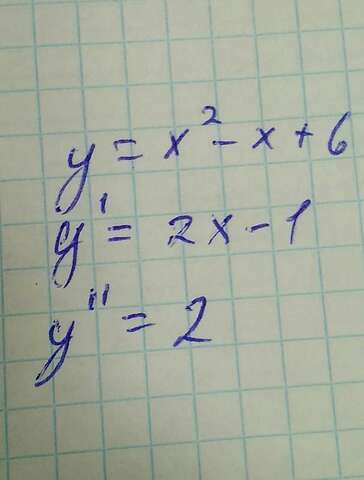 y = x² - x + 6
y' = 2x - 1
y'' = 2